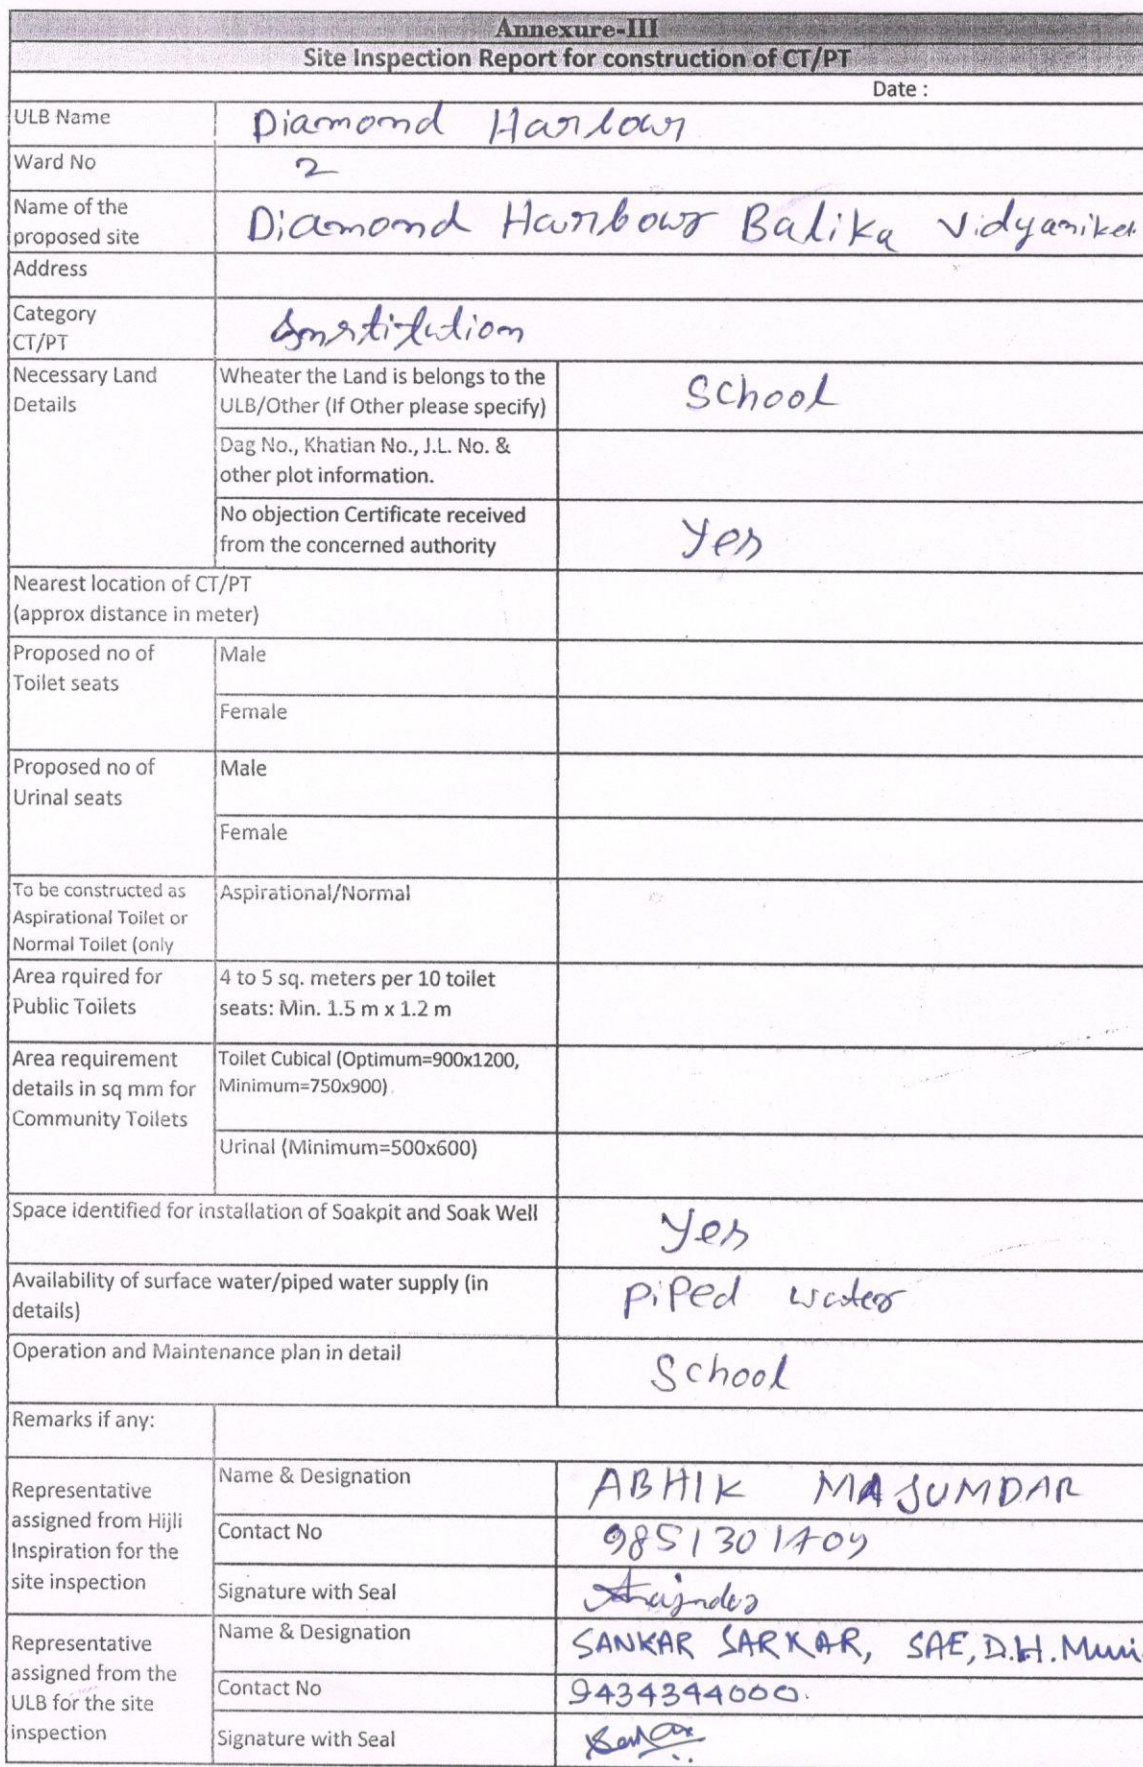 Annexure-III
Site Inspection Report for construction of CT/PT
Date :
ULB Name Diamond Harbour
Ward No 2
Name of the
proposed site Diamond Harbour Balika Vidyaniket
Address
Category
CT/PT Institution
Necessary Land
Details
Wheater the Land is belongs to the
ULB/Other (If Other please specify) School
Dag No., Khatian No., J.L. No. &
other plot information.
No objection Certificate received
from the concerned authority Yes
Nearest location of CT/PT
(approx distance in meter)
Proposed no of
Toilet seats
Male
Female
Proposed no of
Urinal seats
Male
Female
To be constructed as
Aspirational Toilet or
Normal Toilet (only
Aspirational/Normal
Area rquired for
Public Toilets
4 to 5 sq. meters per 10 toilet
seats: Min. 1.5 m x 1.2 m
Area requirement
details in sq mm for
Community Toilets
Toilet Cubical (Optimum=900x1200,
Minimum=750x900)
Urinal (Minimum=500x600)
Space identified for installation of Soakpit and Soak Well Yes
Availability of surface water/piped water supply (in
details) Piped water
Operation and Maintenance plan in detail School
Remarks if any:
Representative
assigned from Hijli
Inspiration for the
site inspection
Name & Designation ABHIK MAJUMDAR
Contact No
Signature with Seal
Representative
assigned from the
ULB for the site
inspection
Name & Designation SANKAR SARKAR, SAE, D.H. Muni
Contact No 9434344000.
Signature with Seal